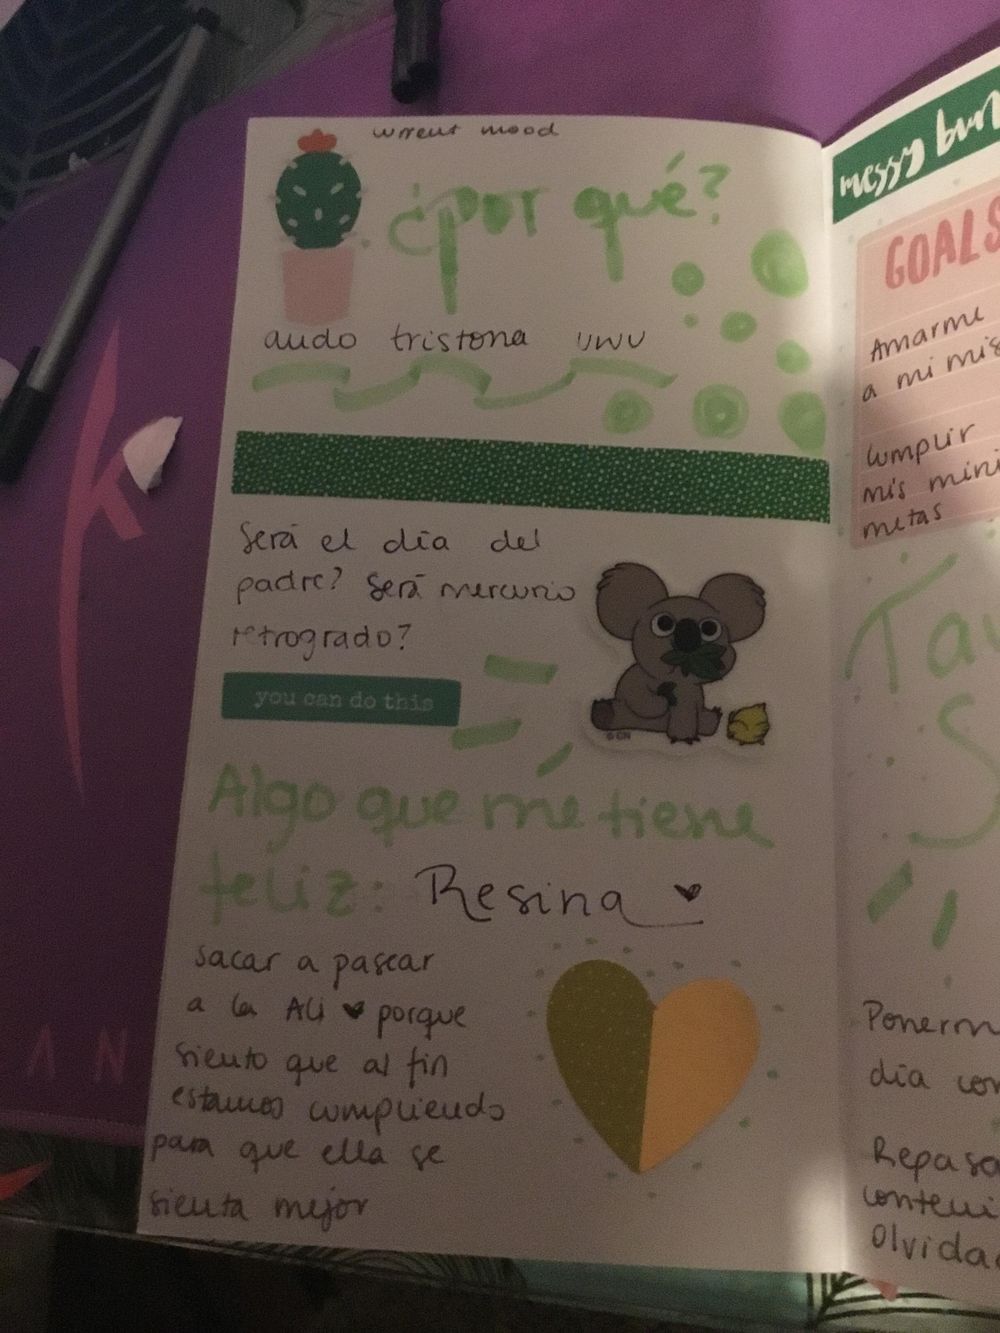 current mood
¿por qué?
ando tristona UWU
Será el día del
padre? Será mercurio
retrogrado?
you can do this
© CN
Algo que me tiene
feliz: Resina
sacar a pasear
a la Ali porque
siento que al fin
estamos cumpliendo
para que ella se
sienta mejor
messy
GOALS
Amarme
a mi
cumplir
mis mini
metas
día
AN